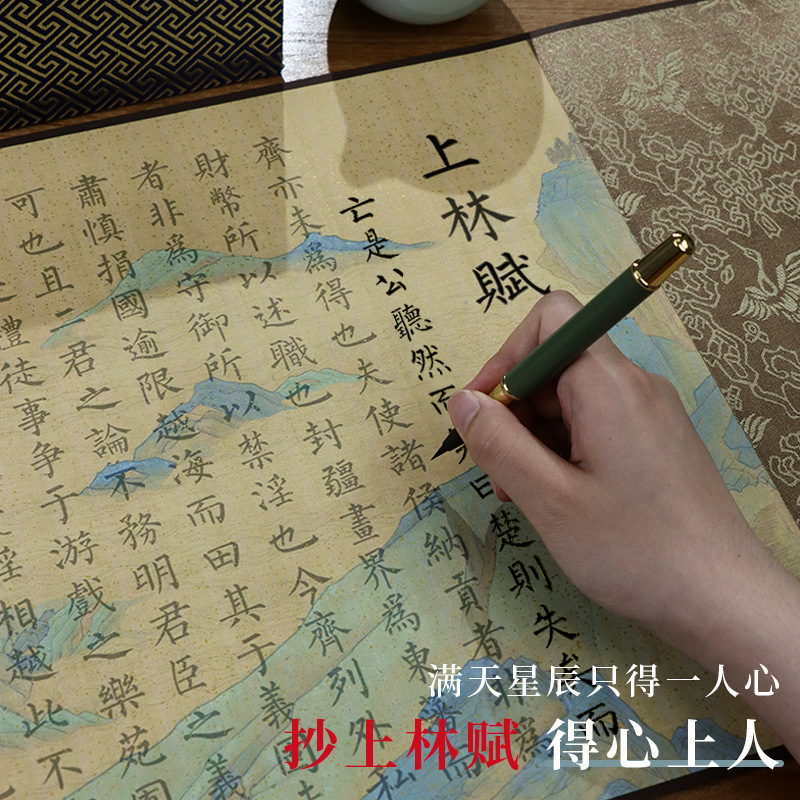 上林賦
亡是公聽然而笑曰楚則失矣而
齊亦未爲得也夫使諸侯納貢者非爲
財幣所以述職也封疆畫界爲東藩而
者非爲守御所以禁淫也今齊列外私
肅慎捐國逾限越海而田其于義固
可也且二君之論不務明君臣之義
禮徒事争于游戲之樂苑囿
淫相越此不
满天星辰只得一人心
抄上林赋 得心上人